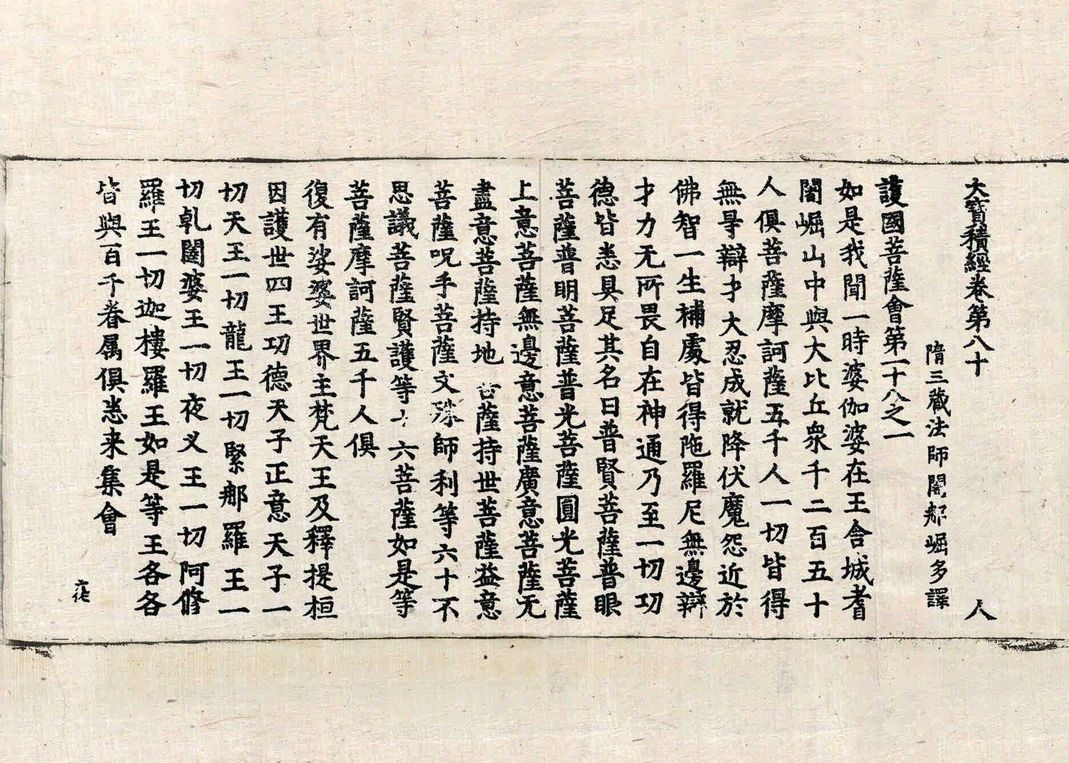 大寳積經卷第八十　人
隋三藏法師闍那崛多譯
護國菩薩會第一十八之一
如是我聞一時婆伽婆在王舍城耆
闍崛山中與大比丘衆千二百五十
人俱菩薩摩訶薩五千人一切皆得
無㝵辯才大忍成就降伏魔怨近於
佛智一生補處皆得陁羅尼無邊辯
才力无所畏自在神通乃至一切功
德皆悉具足其名曰普賢菩薩普眼
菩薩普明菩薩普光菩薩圓光菩薩
上意菩薩無邊意菩薩廣意菩薩无
盡意菩薩持地菩薩持世菩薩益意
菩薩呪手菩薩文殊師利等六十不
思議菩薩賢護等十六菩薩如是等
菩薩摩訶薩五千人俱
復有娑婆世界主梵天王及釋提桓
因護世四王功德天子正意天子一
切天王一切龍王一切緊那羅王一
切乹闥婆王一切夜叉王一切阿修
羅王一切迦樓羅王如是等王各各
皆與百千眷属俱悉来集會